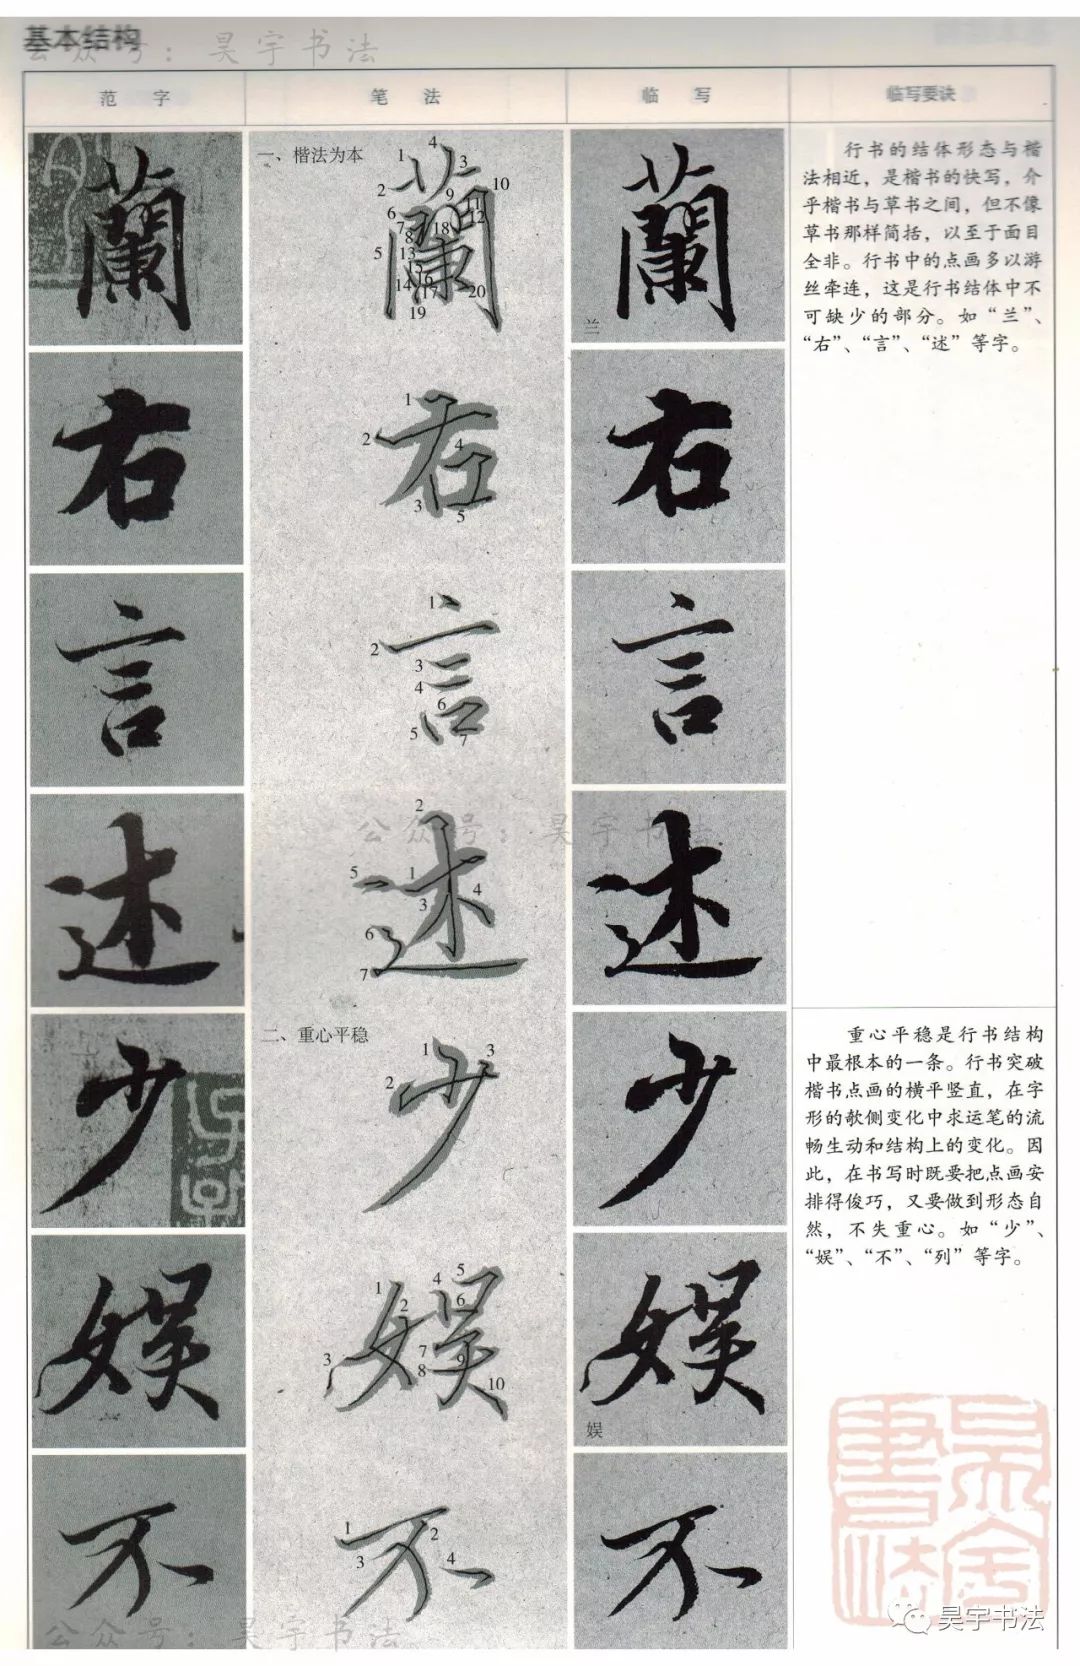 基本结构
公众号：昊宇书法
范 字
笔 法
临 写
临写要诀
蘭
一、楷法为本
1 2 3 4 5 6 7 8 9 10 11 12 13 14 15 16 17 18 19 20
蘭
兰
行书的结体形态与楷
法相近，是楷书的快写，介
乎楷书与草书之间，但不像
草书那样简括，以至于面目
全非。行书中的点画多以游
丝牵连，这是行书结体中不
可缺少的部分。如“兰”、
“右”、“言”、“述”等字。
右
1 2 3 4 5
右
言
1 2 3 4 5 6 7
言
公众号：昊宇书法
述
1 2 3 4 5 6 7
述
少
二、重心平稳
1 2 3
少
重心平稳是行书结构
中最根本的一条。行书突破
楷书点画的横平竖直，在字
形的欹侧变化中求运笔的流
畅生动和结构上的变化。因
此，在书写时既要把点画安
排得俊巧，又要做到形态自
然，不失重心。如“少”、
“娱”、“不”、“列”等字。
娱
1 2 3 4 5 6 7 8 9 10
娱
娱
不
1 2 3 4
不
昊宇书法
昊宇书法
公众号：昊宇书法